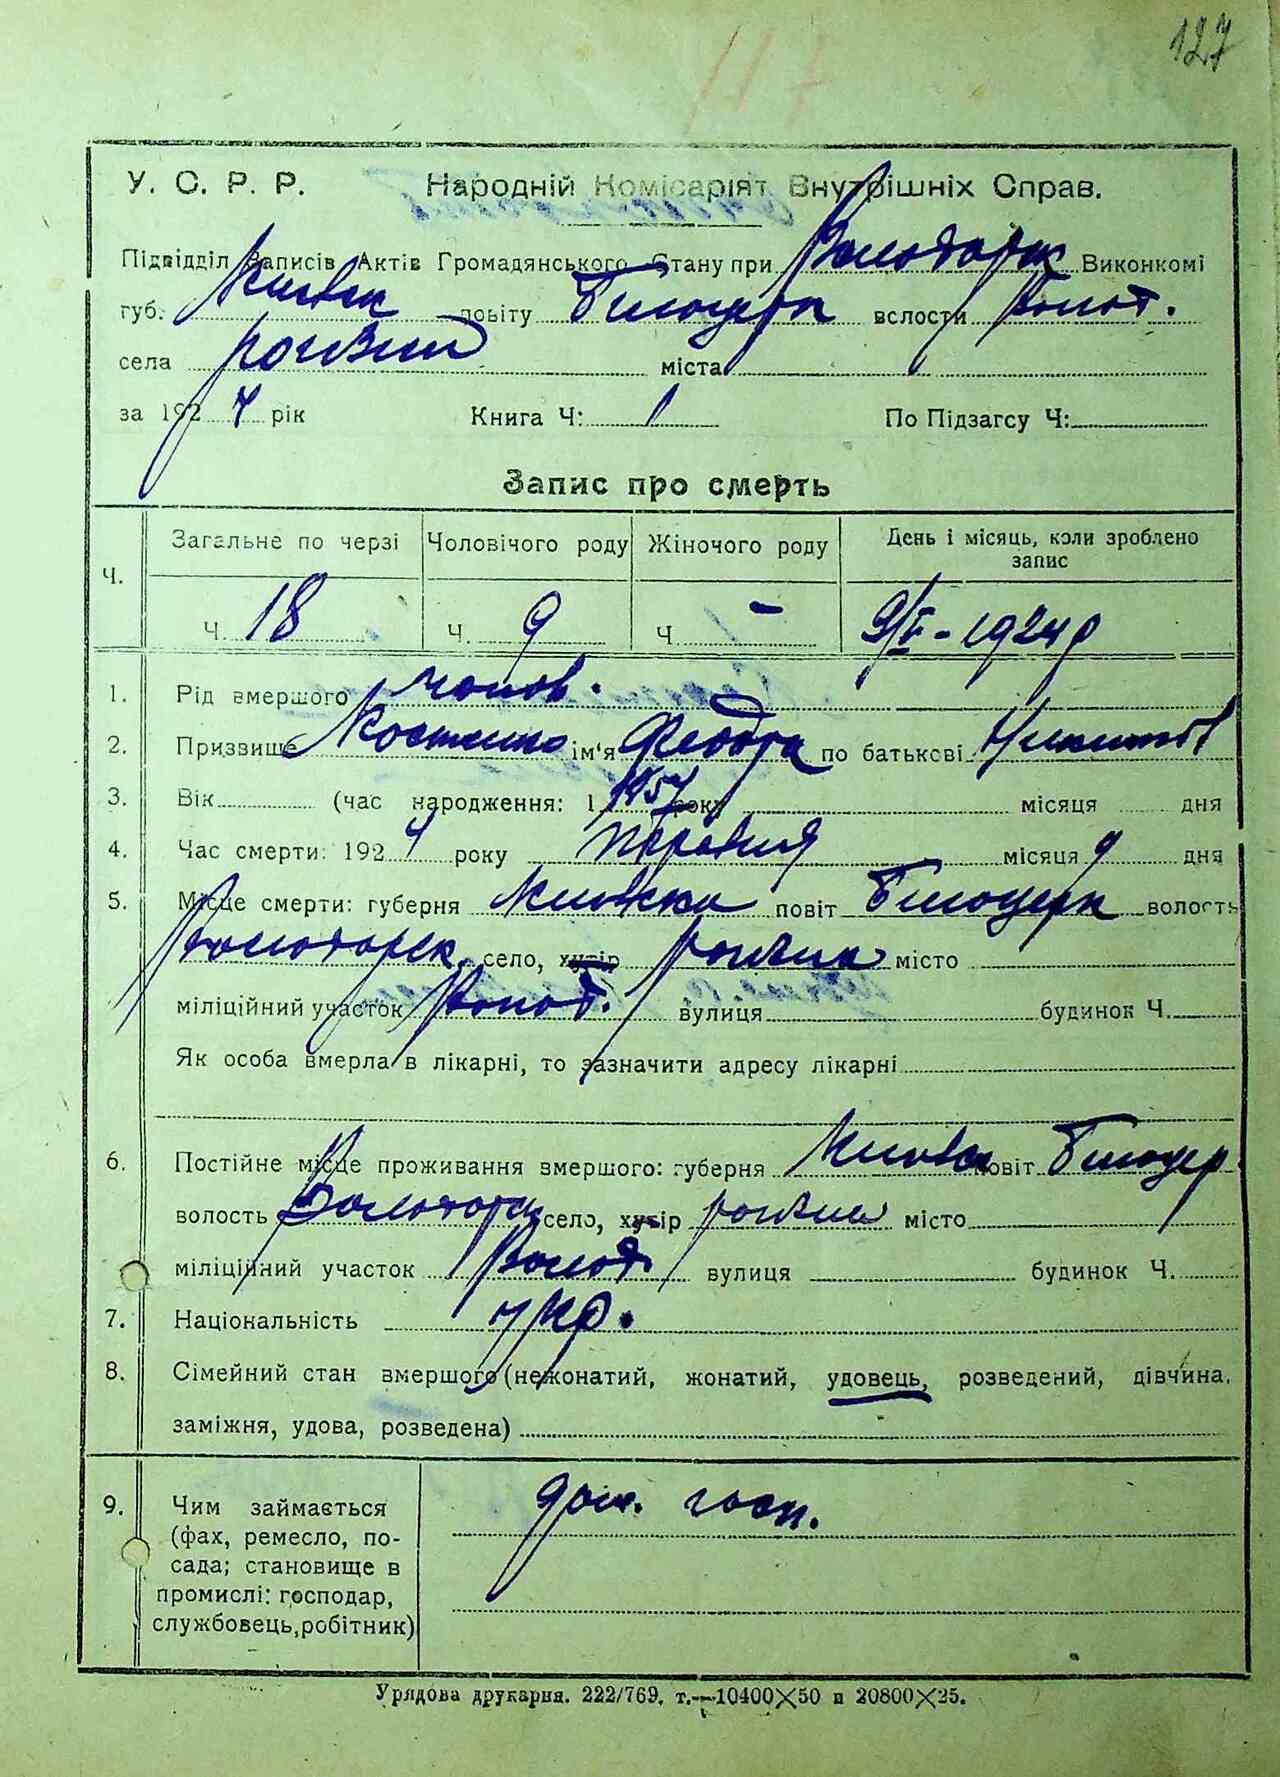 127
117
У. С. Р. Р. Народній Комісаріят Внутрішніх Справ.
Підвідділ Записів Актів Громадянського Стану при Володарск Виконкомі
губ. Київск повіту Білоцерк вслости Волод.
села міста
за 1924 рік Книга Ч: 1 По Підзагсу Ч:
Запис про смерть
Ч. Загальне по черзі Чоловічого роду Жіночого роду День і місяць, коли зроблено запис
Ч. 18 Ч. 9 Ч – 1924р
1. Рід вмершого чолов.
2. Призвище Костенко ім'я Федора по батькові Никитов
3. Вік (час народження: 1857 року місяця дня
4. Час смерти: 1924 року травня місяця 9 дня
5. Місце смерти: губерня Київска повіт Білоцерк волость
Володарск. село, хутір місто
міліційний участок Волод. вулиця будинок Ч.
Як особа вмерла в лікарні, то зазначити адресу лікарні
6. Постійне місце проживання вмершого: губерня Київск повіт Білоцер
волость Володарск село, хутір місто
міліційний участок Волод вулиця будинок Ч.
7. Національність укр.
8. Сімейний стан вмершого (нежонатий, жонатий, удовець, розведений, дівчина,
заміжня, удова, розведена)
9. Чим займається дом. госп.
(фах, ремесло, по-
сада; становище в
промислі: господар,
службовець, робітник)
Урядова друкарня. 222/769, т.—10400×50 и 20800×25.